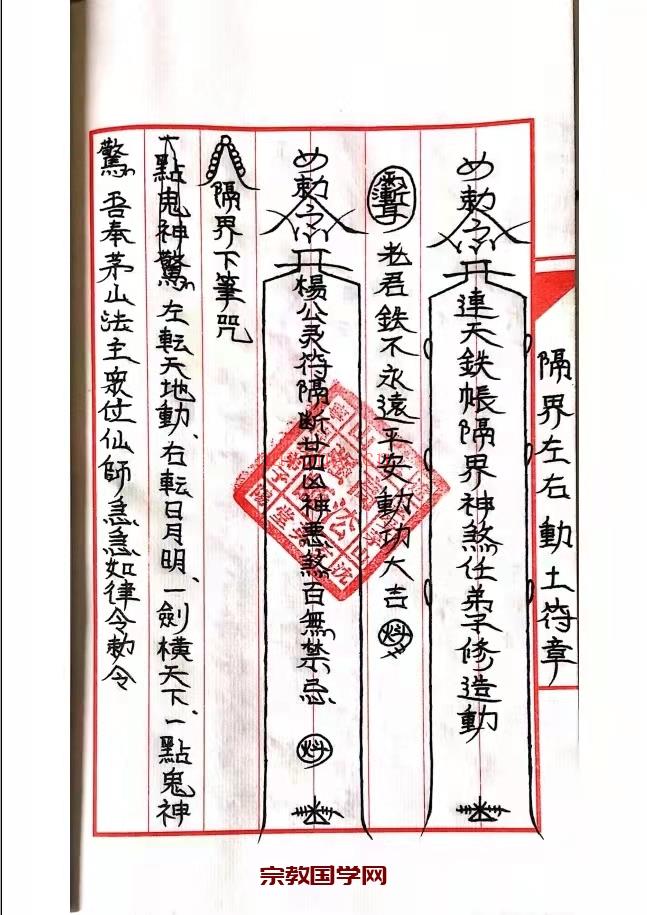 隔界左右動土符章
勅令
連天鉄帳隔界神煞任弟子修造動
老君鉄不永遠平安動功大吉
勅令
楊公灵符隔断廿四凶神悪煞百無禁忌
隔界下筆咒
一點鬼神驚左転天地動、右転日月明、一劍横天下、一點鬼神
驚吾奉茅山法主眾位仙師急急如律令勅令
宗教国学网